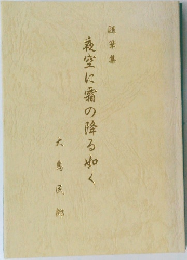 随筆集
夜空に霜の降る如く
大島民郎